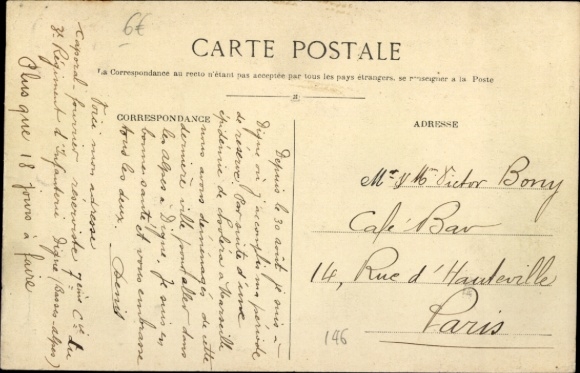 6€
CARTE POSTALE
La Correspondance au recto n'étant pas acceptée par tous les pays étrangers, se renseigner a la Poste
CORRESPONDANCE
Depuis le 30 août je suis à
Digne où j'accomplis ma période
de réserve. Par suite d'une
épidémie de choléra à Marseille
nous avons déménagés de cette
dernière ville pour aller dans
les alpes à Digne. Je suis en
bonne santé et vous embrasse
tous les deux.
Voici mon adresse
Caporal-fourrier réserviste 7ème Cie du
3e Régiment d'Infanterie Digne (Basses alpes)
Plus que 18 jours à faire
ADRESSE
Mr & Mme Victor Bony
Café Bar
14, Rue d'Hauteville
Paris
146